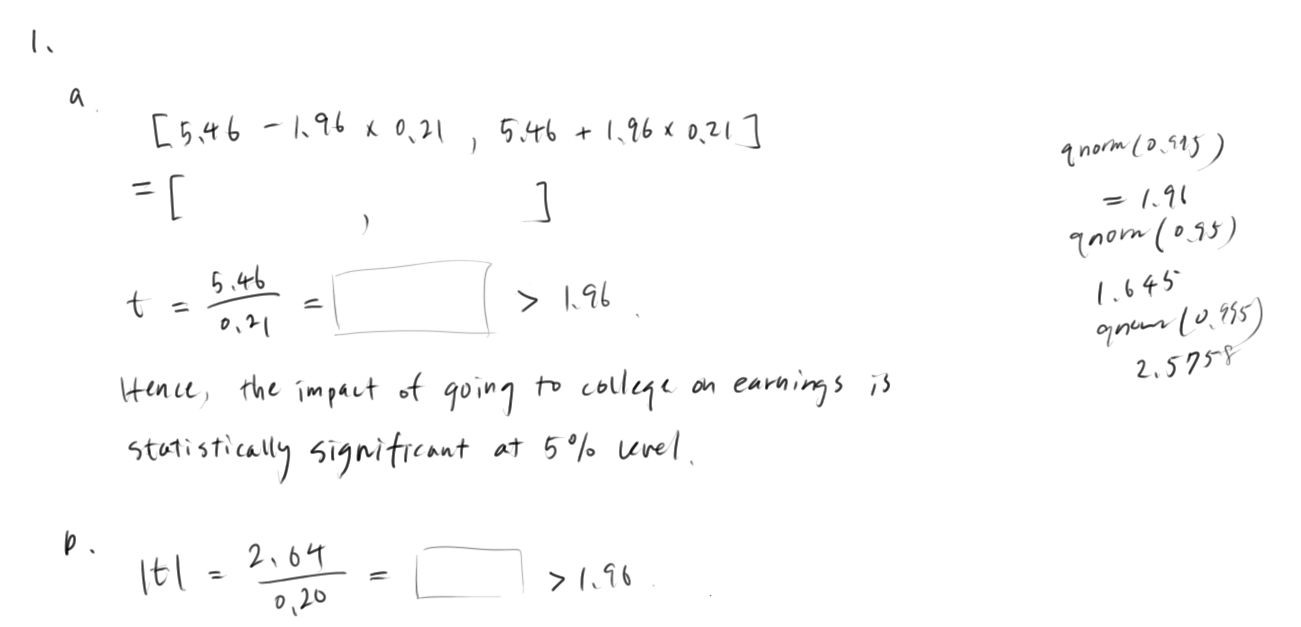 1.
a.
[5.46 - 1.96 x 0.21 , 5.46 + 1.96 x 0.21]
= [ , ]
t = 5.46 / 0.21 = > 1.96.
Hence, the impact of going to college on earnings is
statistically significant at 5% level.
b.
|t| = 2.64 / 0.20 = > 1.96.
qnorm(0.975)
= 1.96
qnorm(0.95)
1.645
qnorm(0.995)
2.5758